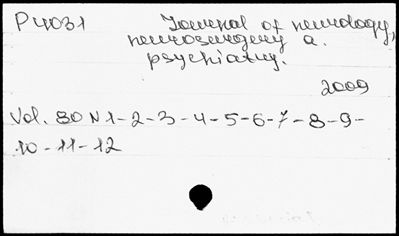 P4031 Journal of neurology,
neurosurgery a.
psychiatry.
2009
Vol. 80 N 1-2-3-4-5-6-7-8-9-
10-11-12